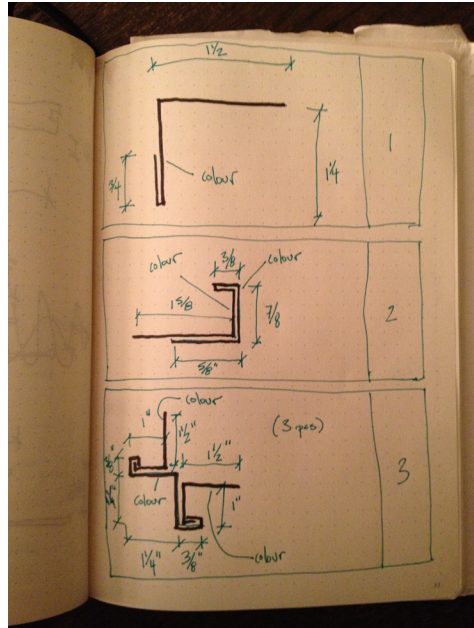 1½
¾
colour
1¼
1
colour
3/8
colour
1 5/8
7/8
5/8"
2
1"
colour
1½"
1½"
(3 pcs)
3/8"
colour
1"
3
1¼"
3/8"
colour